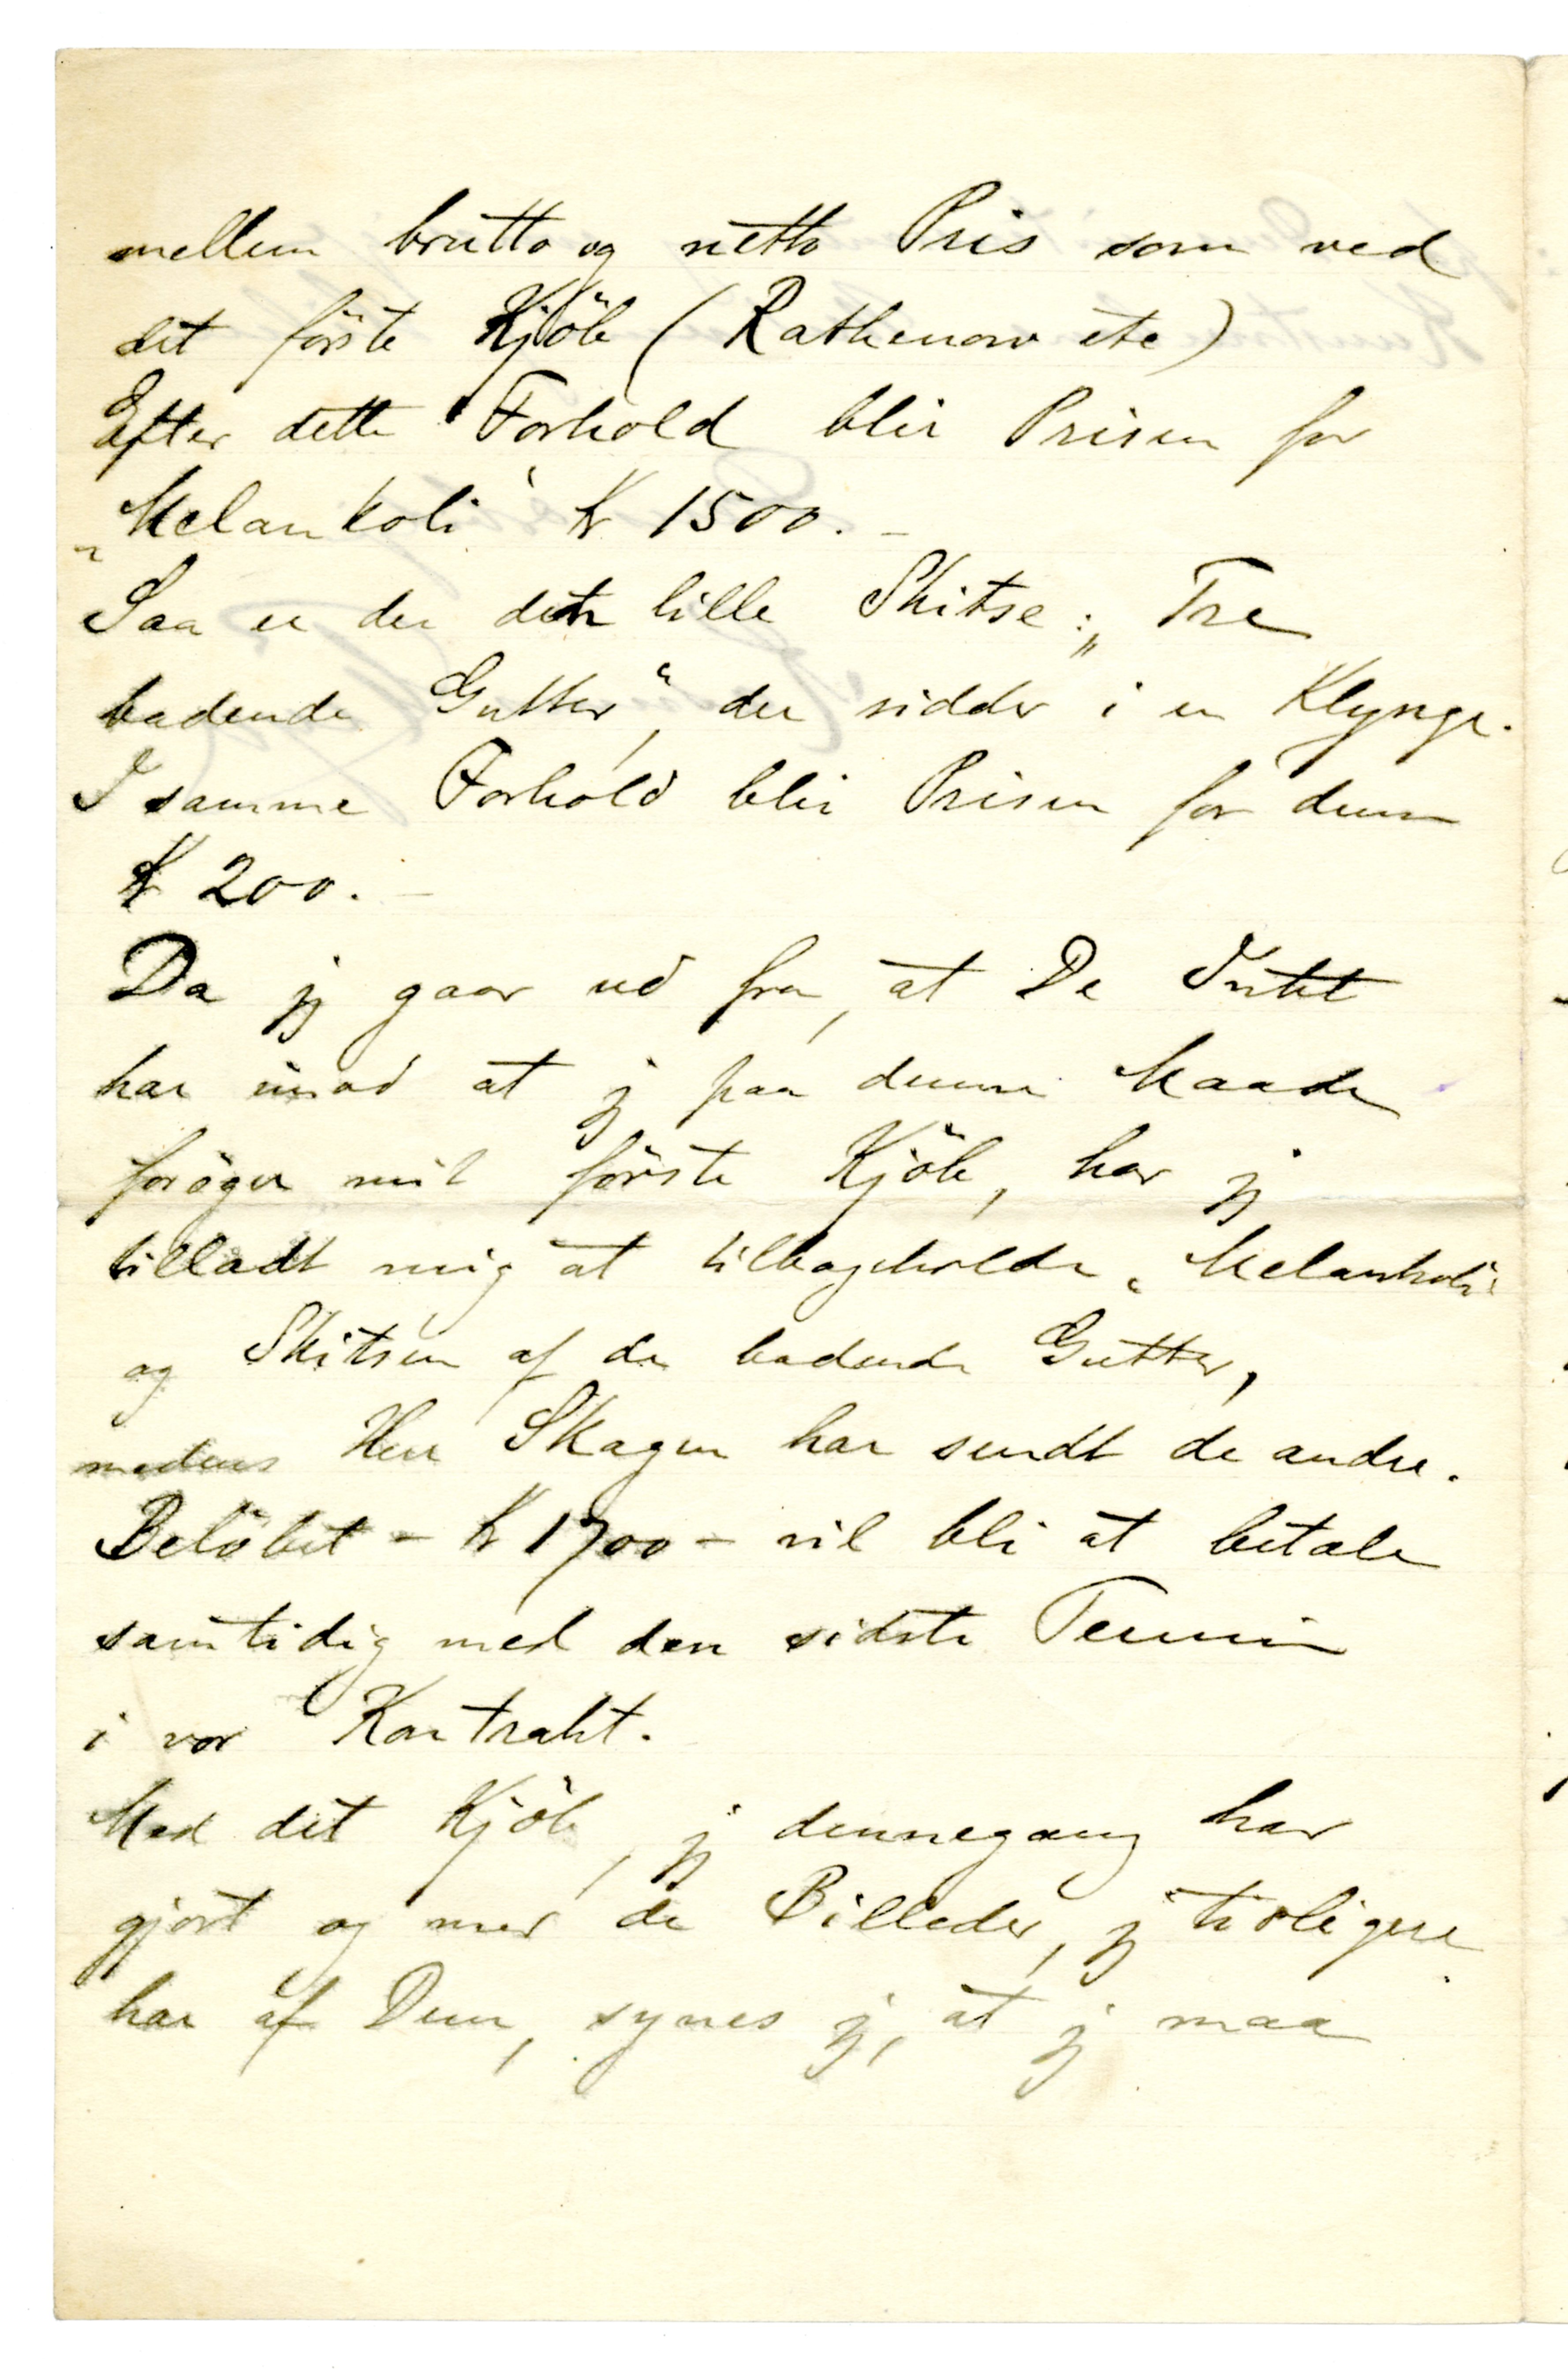 mellem brutto og netto Pris som ved
det förste Kjöb (Rathenow etc)
Efter dette Forhold blir Prisen for
„Melankoli“ Kr 1500.–
Saa er der den lille Skitse: „Tre
badende Gutter“, der sidder i en Klynge.
I samme Forhold blir Prisen for denne
Kr 200.–
Da jeg gaar ud fra, at De Intet
har imod at jeg paa denne Maade
foröger mit förste Kjöb, har jeg
tilladt mig at tilbageholde „Melankoli“
og Skitsen af de badende Gutter,
medens Herr Skagen har sendt de andre.
Belöbet – Kr 1700 – vil bli at betale
samtidig med den sidste Termin
i vor Kontrakt.
Med det Kjöb, jeg dennegang har
gjort og med de Billeder, jeg tidligere
har af Dem, synes jeg, at jeg maa